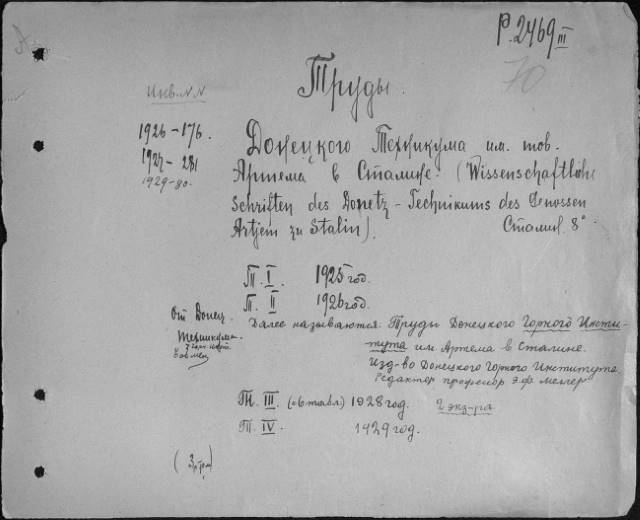 P. 2469 III
70
Труды.
Инв. N.N
1926-176.
1927-281
1929-80.
Донецкого Техникума им. тов.
Артема в Сталине. (Wissenschaftliche
Schriften des Donetz-Technikums des Genossen
Artjem zu Stalin). Сталин. 8°
Т. I. 1925 год.
Т. II 1926 год.
От Донец.
Техникума.
Далее называются: Труды Донецкого Горного Инсти-
тута им. Артема в Сталине.
Изд-во Донецкого Горного Института
Редактор профессор Э.Ф. Меллер
Т. III. (с табл.) 1928 год. 2 экз-ра
Т. IV. 1929 год.